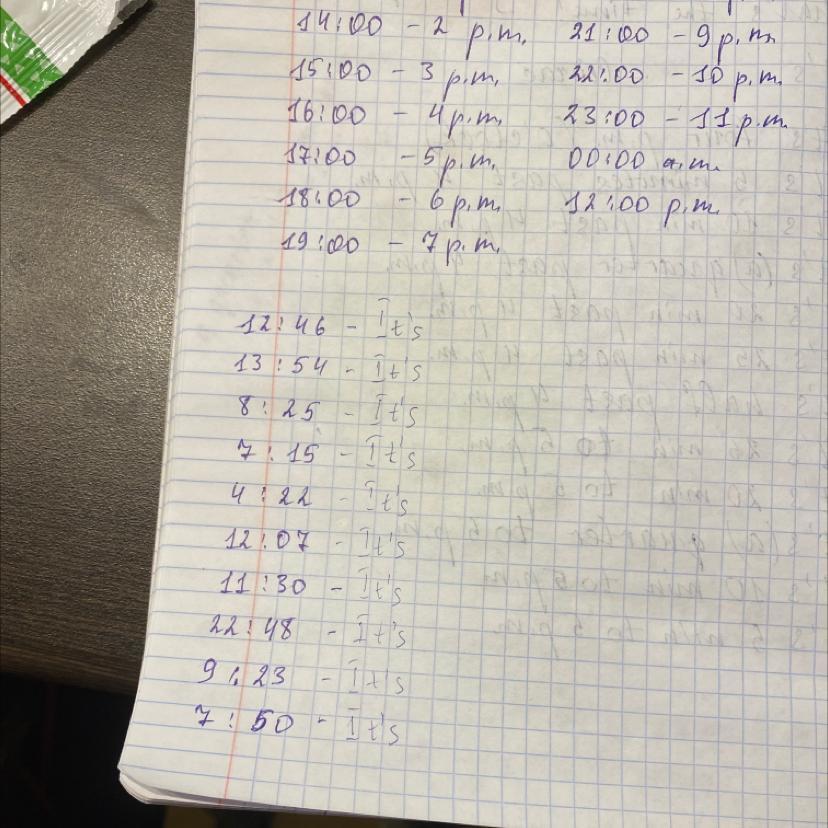 14:00 - 2 p.m. 21:00 - 9 p.m.
15:00 - 3 p.m. 22:00 - 10 p.m.
16:00 - 4 p.m. 23:00 - 11 p.m.
17:00 - 5 p.m. 00:00 a.m.
18:00 - 6 p.m. 12:00 p.m.
19:00 - 7 p.m.
12:46 - It's
13:54 - It's
8:25 - It's
7:15 - It's
4:22 - It's
12:07 - It's
11:30 - It's
22:48 - It's
9:23 - It's
7:50 - It's